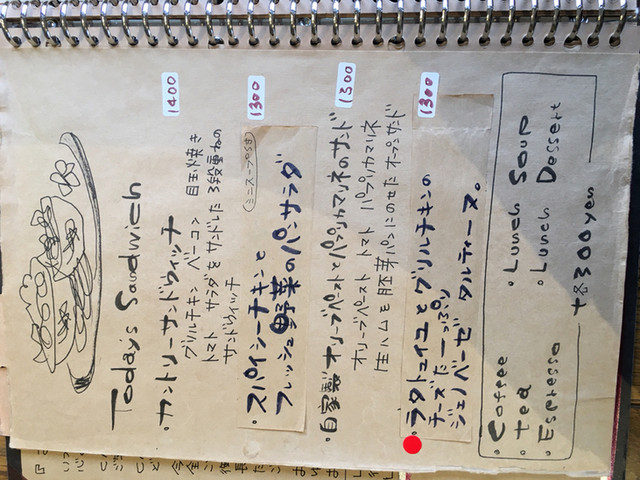 Today's Sandwich
・カントリーサンドウィッチ 1400
グリルチキン ベーコン 目玉焼き
トマト サラダをサンドした3段重ねの
サンドウィッチ
・スパイシーチキンと (ミニスープつき) 1300
フレッシュ野菜のパンサラダ
・自家製オリーブペーストとパプリカマリネのサンド 1300
オリーブペースト トマト パプリカマリネ
生ハムを胚芽パンにのせたオープンサンド
・ラタトゥイユとグリルチキンの 1300
チーズたーっぷり
ジェノベーゼ タルティーヌ。
・Coffee ・Lunch Soup
・tea ・Lunch Dessert
・Espresso
+各300yen